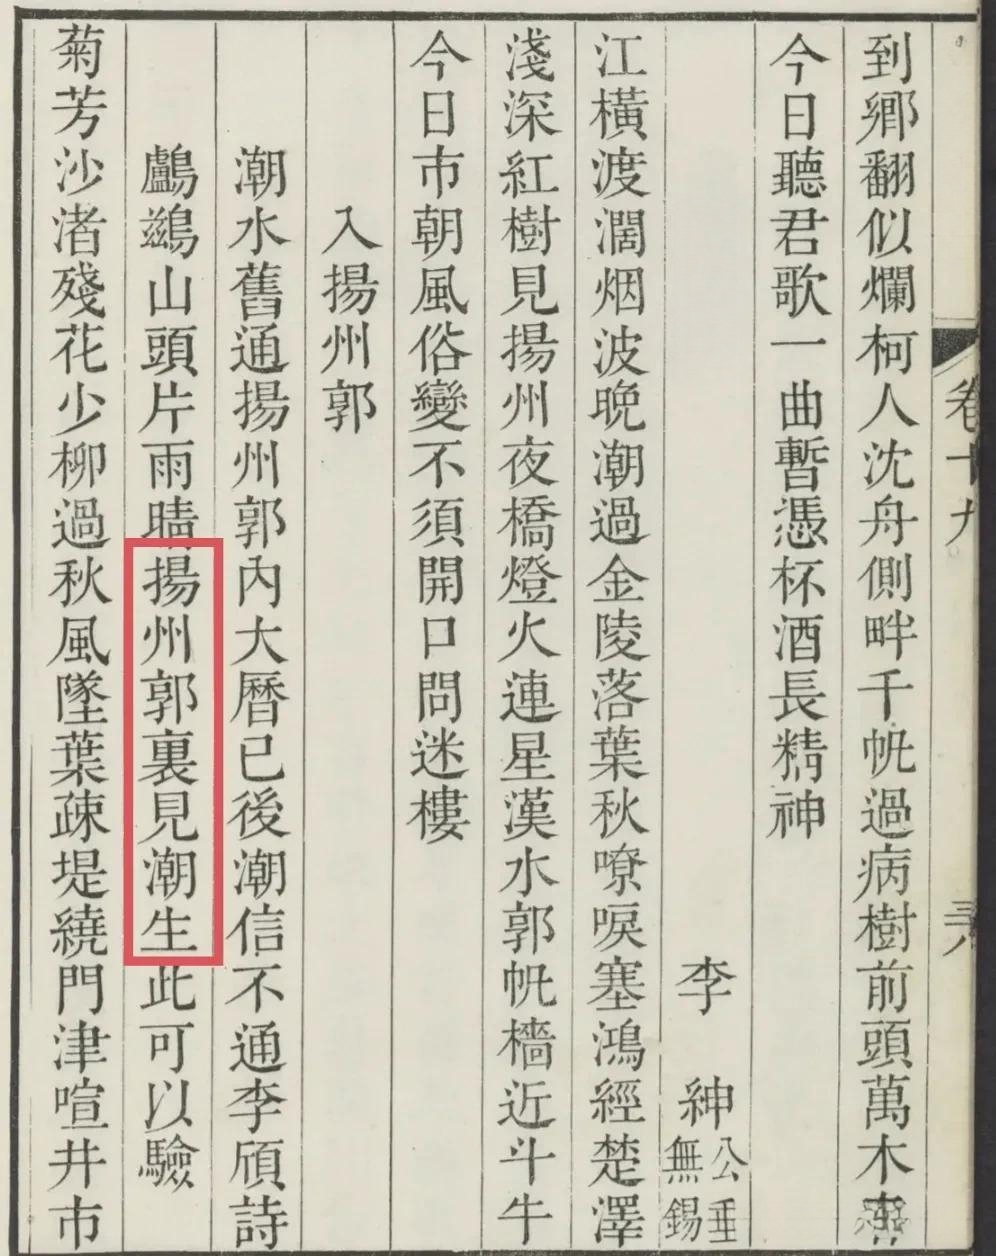 卷十九
到鄉翻似爛柯人沈舟側畔千帆過病樹前頭萬木
今日聽君歌一曲暫憑杯酒長精神
李紳公垂無錫
江橫渡濶烟波晚潮過金陵落葉秋嘹唳塞鴻經楚澤
淺深紅樹見揚州夜橋燈火連星漢水郭帆檣近斗牛
今日市朝風俗變不須開口問迷樓
入揚州郭
潮水舊通揚州郭內大曆已後潮信不通李頎詩
鸕鷀山頭片雨晴揚州郭裏見潮生此可以驗
菊芳沙渚殘花少柳過秋風墜葉疎堤繞門津喧井市